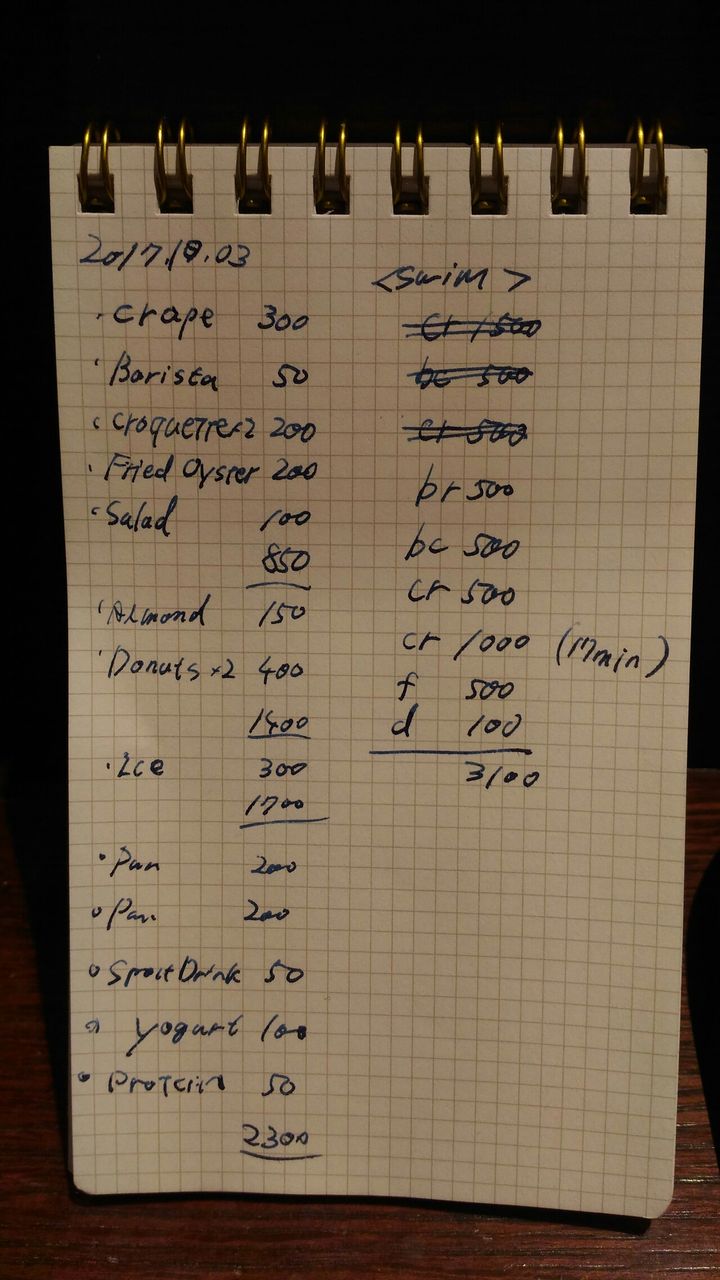 2017.10.03
· Crape 300
· Barista 50
· Croquette×2 200
· Fried Oyster 200
· Salad 100
850
· Almond 150
· Donuts ×2 400
1400
· Ice 300
1700
· Pan 200
· Pan 200
· Sport Drink 50
· Yogurt 100
· Protein 50
2300
<Swim>
cr 1500
bc 500
cr 500
br 500
bc 500
cr 500
cr 1000 (17min)
f 500
d 100
3100